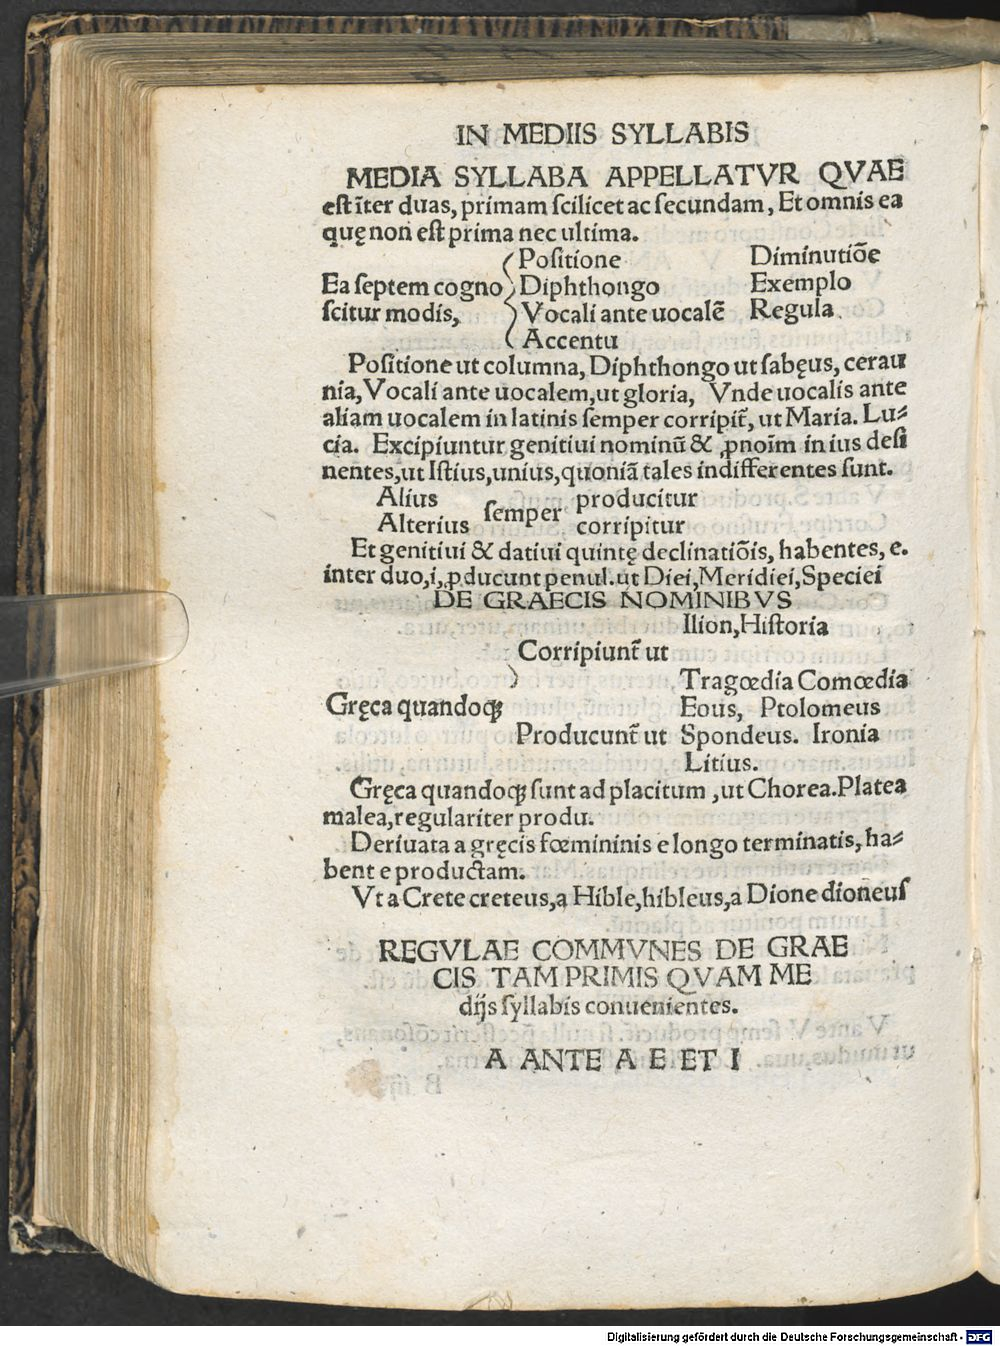 IN MEDIIS SYLLABIS
MEDIA SYLLABA APPELLATVR QVAE
eſt īter duas, primam ſcilicet ac ſecundam, Et omnis ea
quę non eſt prima nec ultima.
Poſitione Diminutiōe
Ea ſeptem cogno Diphthongo Exemplo
ſcitur modis, Vocali ante uocalē Regula
Accentu
Poſitione ut columna, Diphthongo ut ſabęus, cerau
nia, Vocali ante uocalem, ut gloria, Vnde uocalis ante
aliam uocalem in latinis ſemper corripit̄, ut Maria. Lu⸗
cia. Excipiuntur genitiui nominū & ꝓnoīm in ius deſi
nentes, ut Iſtius, unius, quoniā tales indifferentes ſunt.
Alius ſemper producitur
Alterius corripitur
Et genitiui & datiui quintę declinatiōis, habentes, e.
inter duo, i, ꝓducunt penul. ut Diei, Meridiei, Speciei
DE GRAECIS NOMINIBVS
Ilion, Hiſtoria
Corripiunt̄ ut
Tragœdia Comœdia
Gręca quandoqꝫ Eous, Ptolomeus
Producunt̄ ut Spondeus. Ironia
Litius.
Gręca quandoqꝫ ſunt ad placitum, ut Chorea. Platea
malea, regulariter produ.
Deriuata a gręcis fœmininis e longo terminatis, ha⸗
bent e productam.
Vt a Crete creteus, a Hible, hibleus, a Dione dioneuſ
REGVLAE COMMVNES DE GRAE
CIS TAM PRIMIS QVAM ME
dijs ſyllabis conuenientes.
A ANTE A E ET I
Digitalisierung gefördert durch die Deutsche Forschungsgemeinschaft - DFG